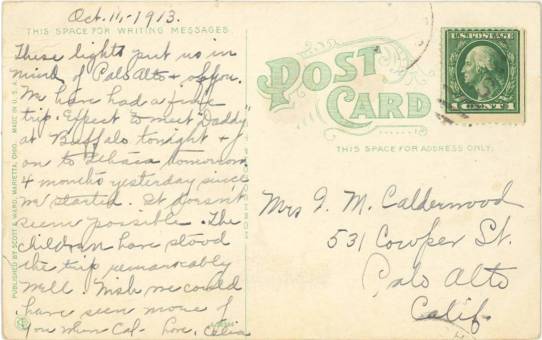 Oct. 11, - 1913.
THIS SPACE FOR WRITING MESSAGES
These lights put us in
mind of Palo Alto + of you.
We have had a fine
trip. Expect to meet "Daddy"
at Buffalo tonight + go
on to Ithaca tomorrow.
4 months yesterday since
we started. It doesn't
seem possible. The
children have stood
the trip remarkably
well. Wish we could
have seen more of
you when Cal- Love, Celia
PUBLISHED BY SCOTT & WARD, MARIETTA, OHIO. MADE IN U.S.A.
POST
CARD
THIS SPACE FOR ADDRESS ONLY.
U.S. POSTAGE
1 CENT 1
Mrs. F. M. Calderwood
531 Cowper St.
Palo Alto
Calif.